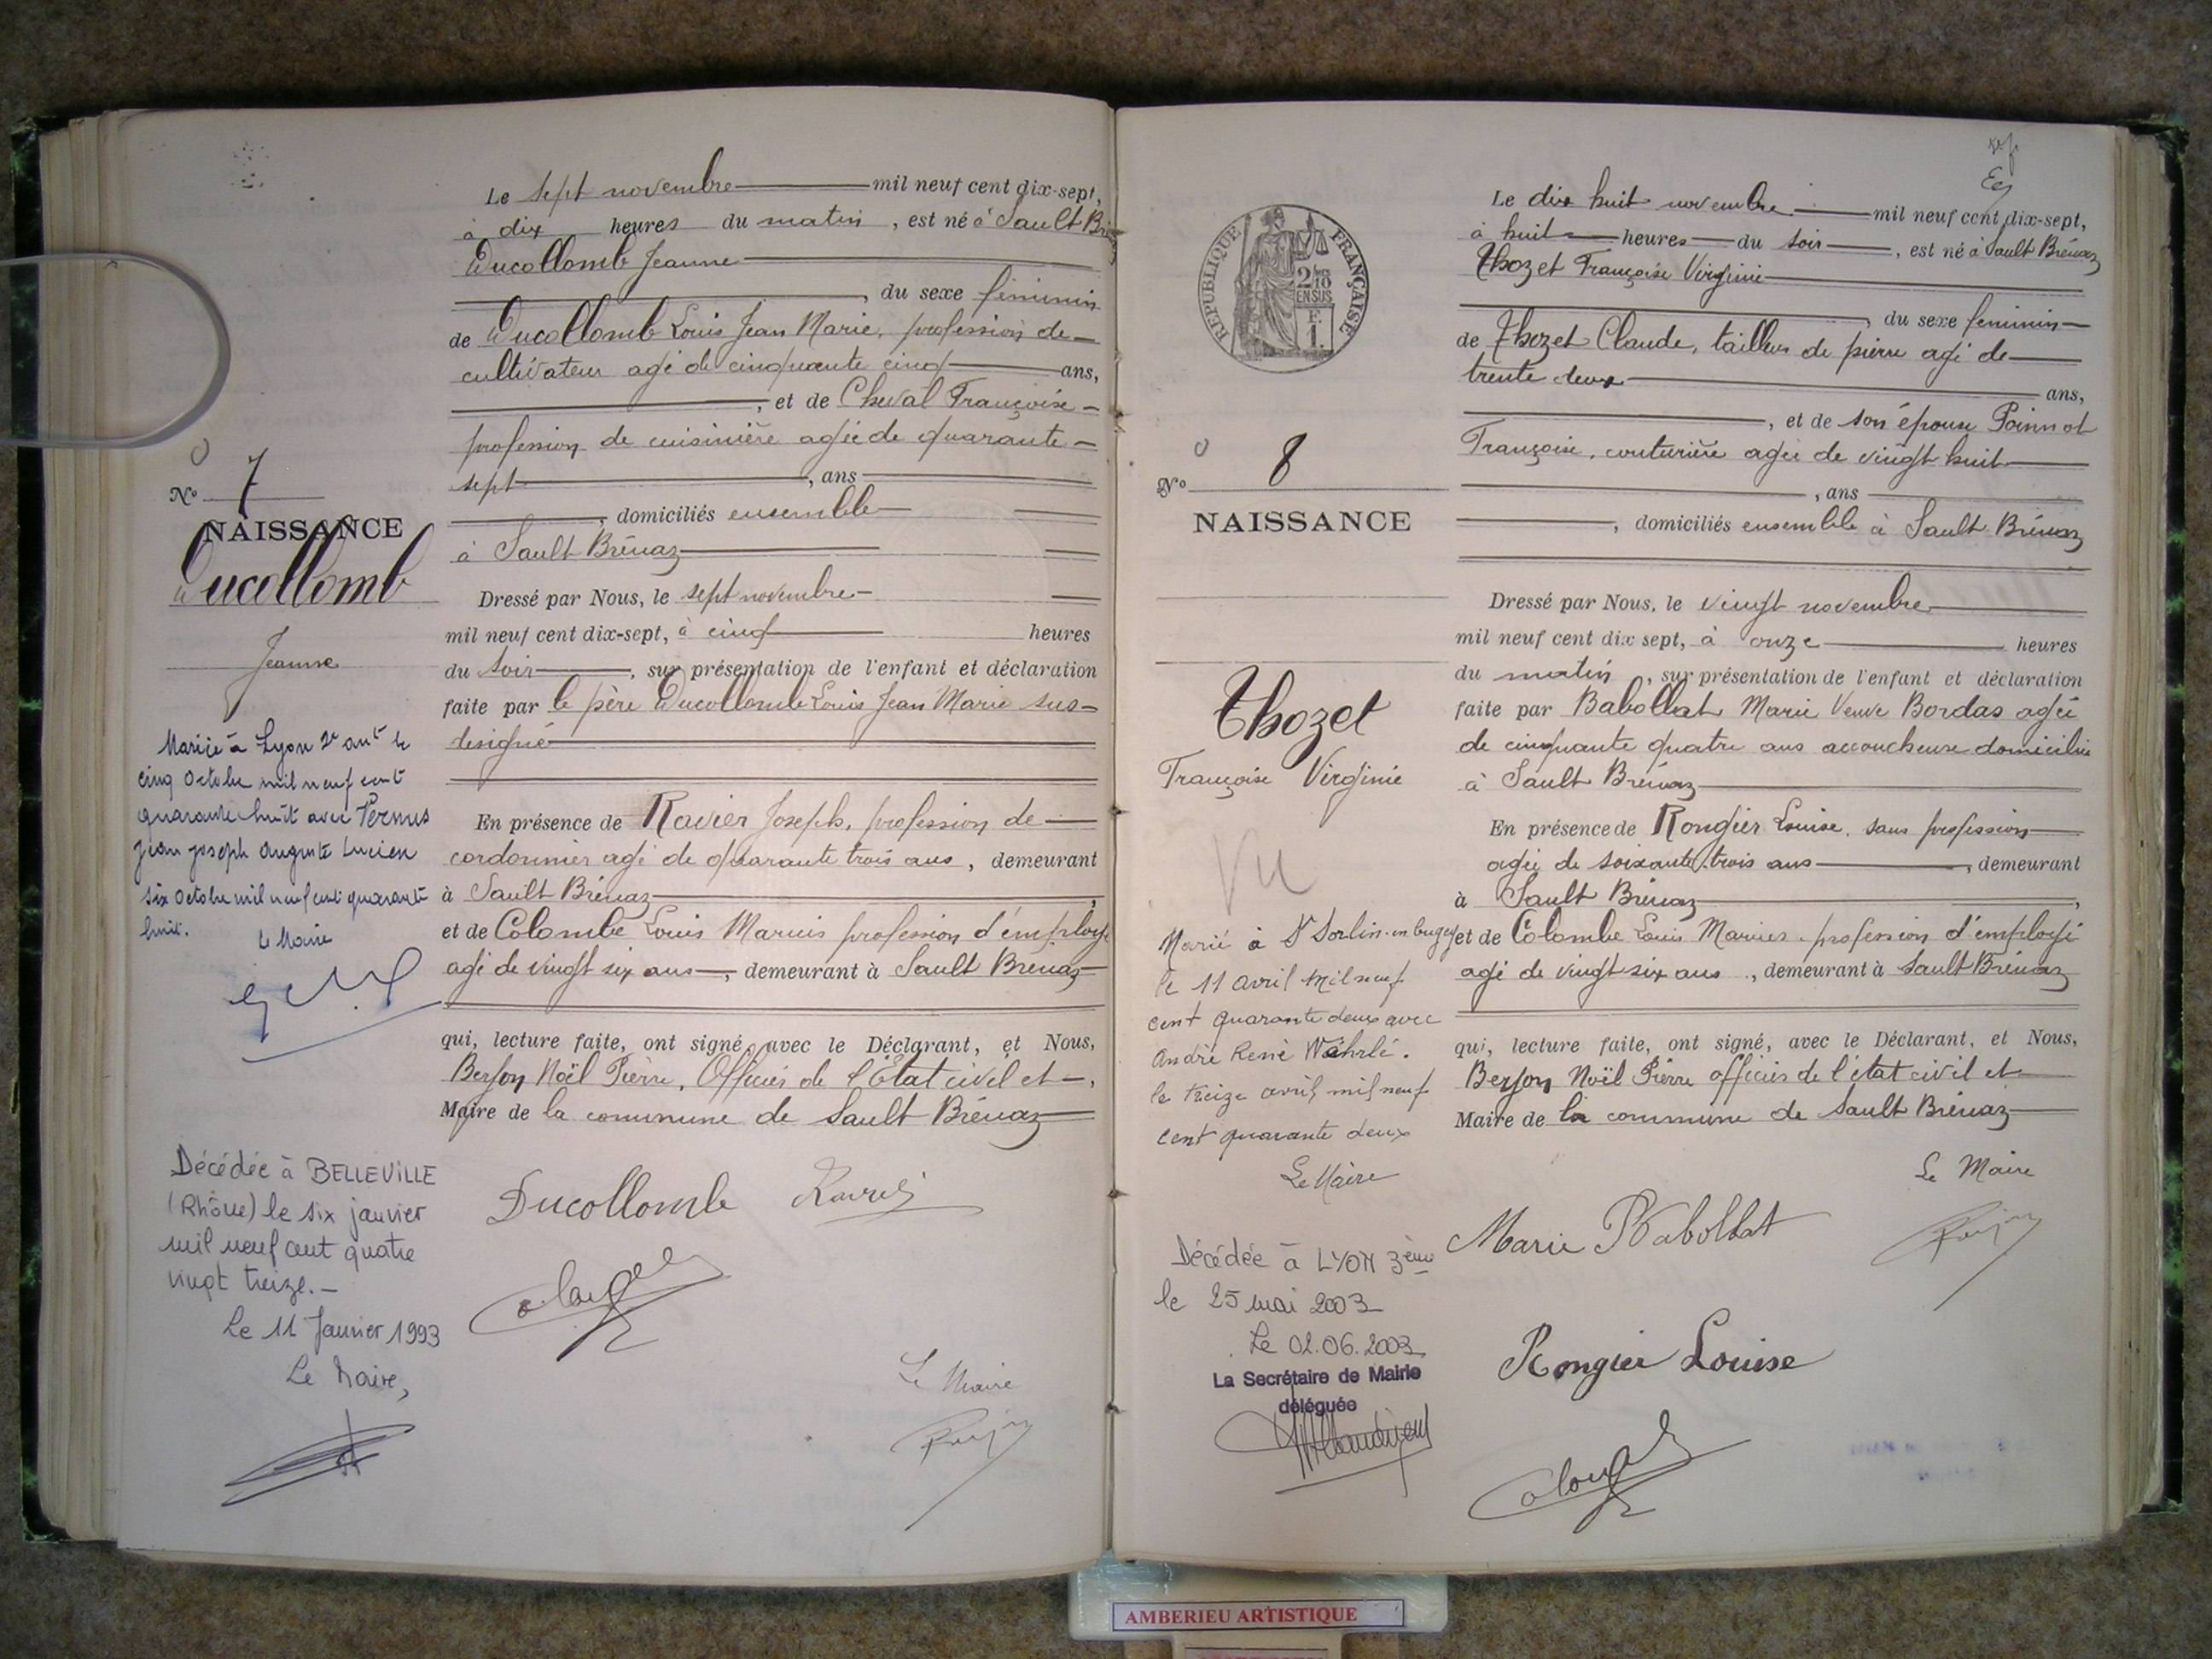 Le sept novembre mil neuf cent dix-sept,
à dix heures du matin, est né à Sault Bré
Ducollomb Jeanne
, du sexe féminin
de Ducollomb Louis Jean Marie, profession de
cultivateur agé de cinquante cinq ans,
, et de Cheval Françoise
profession de cuisinière agée de quarante
sept, ans
, domiciliés ensemble
à Sault Brénaz
Dressé par Nous, le sept novembre
mil neuf cent dix-sept, à cinq heures
du soir, sur présentation de l'enfant et déclaration
faite par le père Ducollomb Louis Jean Marie sus-
designé
En présence de Ravier Joseph, profession de
cordonnier agé de quarante trois ans, demeurant
à Sault Brénaz,
et de Colombe Louis Marius profession d'employé
agé de vingt six ans, demeurant à Sault Brénaz
qui, lecture faite, ont signé, avec le Déclarant, et Nous,
Noël Pierre, Officier de l'Etat civil et,
Maire de la commune de Sault Brénaz
Ducollomb
Le Maire
No 7
NAISSANCE
Ducollomb
Jeanne
Mariée à Lyon 2e ont le
cinq Octobre mil neuf cent
quarante huit avec Vernus
jean joseph auguste Lucien
six Octobre mil neuf cent quarante
huit.
Le Maire
Décédée à BELLEVILLE
(Rhône) le six janvier
mil neuf cent quatre
vingt treize.-
Le 11 Janvier 1993
Le Maire,
RÉPUBLIQUE FRANÇAISE
2/10
EN SUS
F.
1.
Le dix huit novembre mil neuf cent dix-sept,
à huit heures du soir, est né à Sault Brénaz
Thozet Françoise Virginie
, du sexe feminin
de Thozet Claude, tailleur de pierre agé de
trente deux ans,
, et de son épouse Poinnot
Françoise, couturière agée de vingt huit
, ans
, domiciliés ensemble à Sault Brénaz
Dressé par Nous, le vingt novembre
mil neuf cent dix sept, à onze heures
du matin, sur présentation de l'enfant et déclaration
faite par Babollat Marie Veuve Bordas agée
de cinquante quatre ans accoucheuse domiciliée
à Sault Brénaz
En présence de Rongier Louise, sans profession
agée de soixante trois ans, demeurant
à Sault Brénaz,
et de Colombe Louis Marius profession d'employé
agé de vingt six ans, demeurant à Sault Brénaz
qui, lecture faite, ont signé, avec le Déclarant, et Nous,
Noël Pierre officier de l'état civil et
Maire de la commune de Sault Brénaz
Le Maire
Marie Babollat
Rongier Louise
No 8
NAISSANCE
Thozet
Françoise Virginie
Vu
Marié à St Sorlin-en bugey
le 11 avril mil neuf
cent quarante deux avec
André René Wöhrlé.
le treize avril mil neuf
cent quarante deux
Le Maire
Décédée à LYON 3ème
le 25 mai 2003
Le 02.06.2003
La Secrétaire de Mairie
déléguée
AMBERIEU ARTISTIQUE